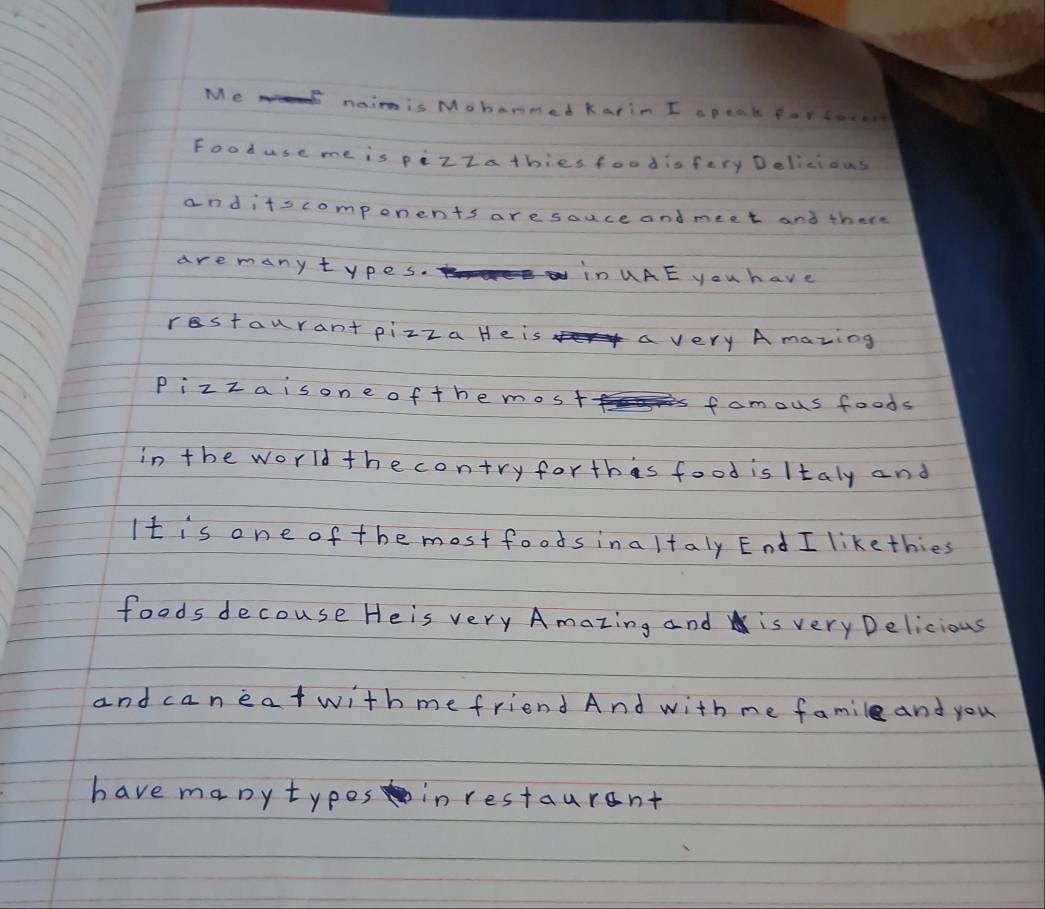 Me naim is Mohammed Karim I speak for
Food use me is pizza thies food is fery Delicious
and its components are sauce and meet and there
are many types. in UAE you have
restaurant pizza He is a very Amazing
Pizza is one of the most famous foods
in the world the contry for this food is Italy and
It is one of the most foods in a Italy End I like thies
foods decouse He is very Amazing and is very Delicious
and can eat with me friend And with me famile and you
have many types in restaurant